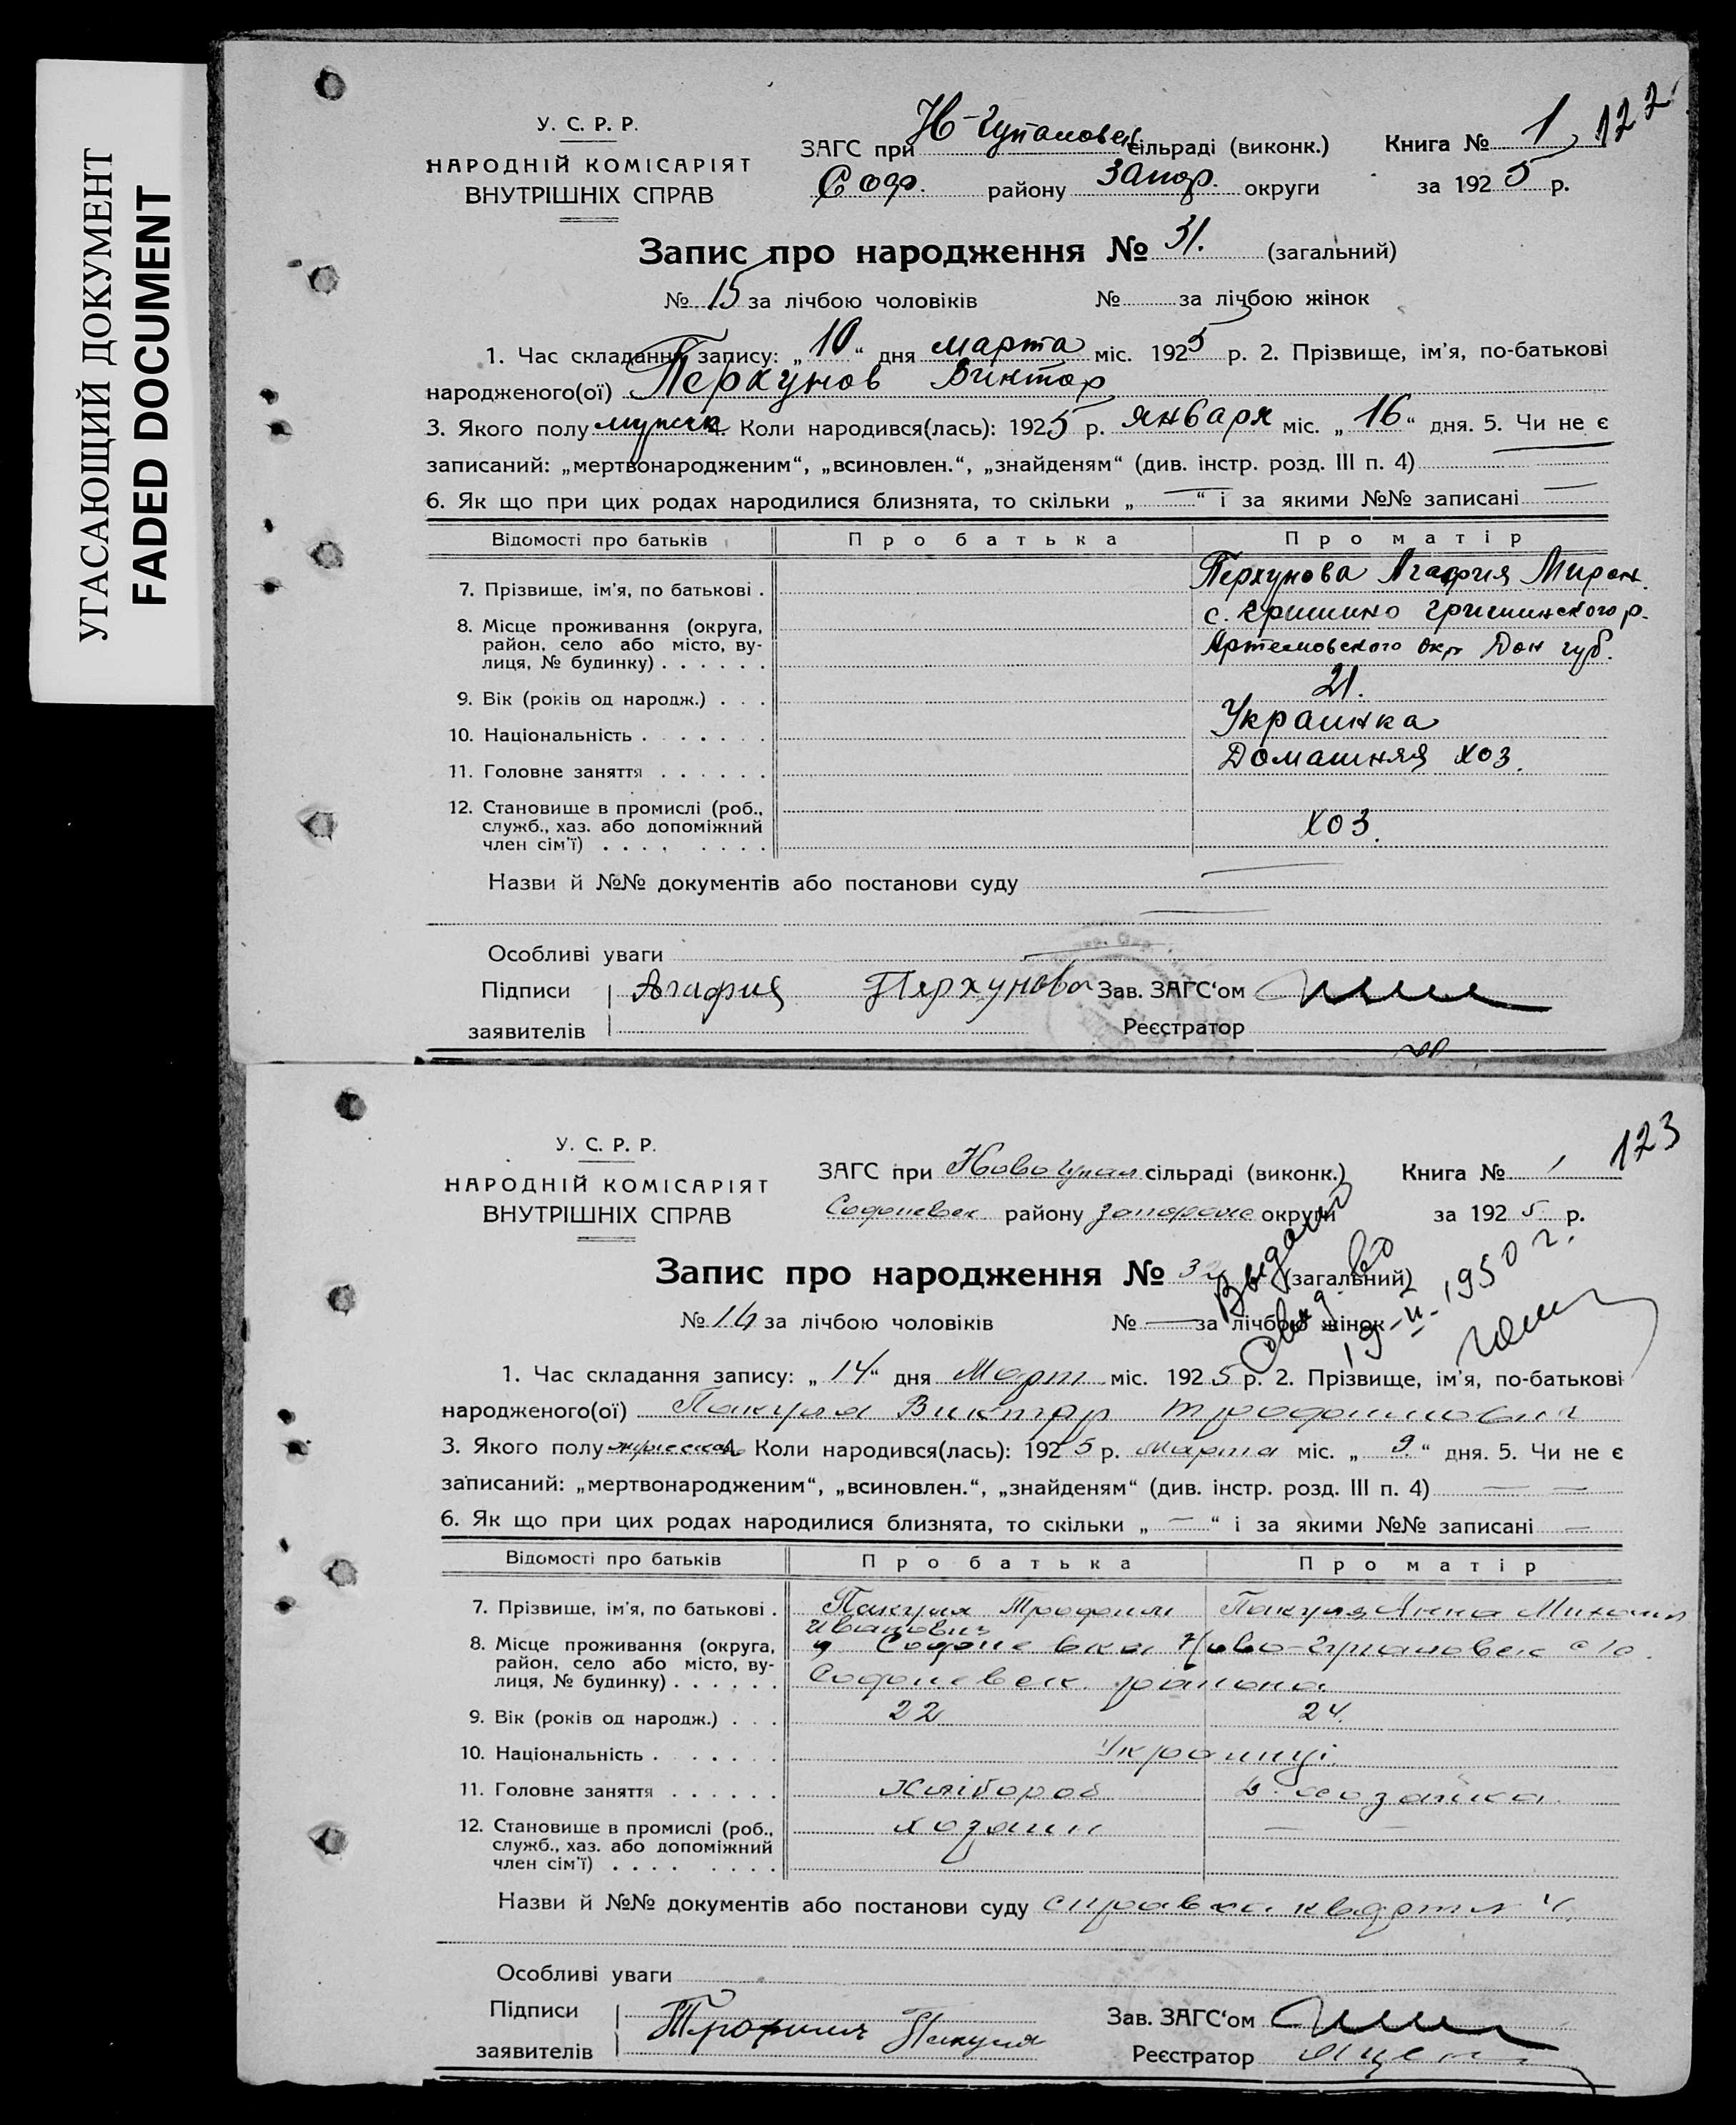 УГАСАЮЩИЙ ДОКУМЕНТ
FADED DOCUMENT
122
У. С. Р. Р.
НАРОДНІЙ КОМІСАРІЯТ
ВНУТРІШНІХ СПРАВ
ЗАГС при Н-Гупаловск сільраді (виконк.) Книга № 1
Соф. району Запор. округи за 1925 р.
Запис про народження № 31. (загальний)
№ 15 за лічбою чоловіків № за лічбою жінок
1. Час складання запису: „10“ дня марта міс. 1925 р. 2. Прізвище, ім'я, по-батькові
народженого(ої) Перхунов Виктор
3. Якого полу мужск Коли народився(лась): 1925 р. января міс. „16“ дня. 5. Чи не є
записаний: „мертвонародженим“, „всиновлен.“, „знайденям“ (див. інстр. розд. III п. 4) —
6. Як що при цих родах народилися близнята, то скільки „—“ і за якими №№ записані —
Відомості про батьків Про батька Про матір
7. Прізвище, ім'я, по батькові . Перхунова Агафия Мирон.
8. Місце проживання (округа, с. Гришино Гришинского р.
район, село або місто, ву- Артемовского окр Дон губ.
лиця, № будинку) . . . . . .
9. Вік (років од народж.) . . . 21.
10. Національність . . . . . . . Украинка
11. Головне заняття . . . . . . Домашняя хоз.
12. Становище в промислі (роб.,
служб., хаз. або допоміжний хоз.
член сім'ї) . . . . . . . .
Назви й №№ документів або постанови суду —
Особливі уваги —
Підписи Агафия Перхунова Зав. ЗАГС'ом
заявителів Реєстратор
123
У. С. Р. Р.
НАРОДНІЙ КОМІСАРІЯТ
ВНУТРІШНІХ СПРАВ
ЗАГС при Новогупал сільраді (виконк.) Книга № 1
Софиевск району Запорожс округи за 1925 р.
Запис про народження № 32 (загальний)
Выдано
свид. во
19-II-1950 г.
№ 16 за лічбою чоловіків № — за лічбою жінок
1. Час складання запису: „14“ дня Март міс. 1925 р. 2. Прізвище, ім'я, по-батькові
народженого(ої) Пакуля Виктор Трофимович
3. Якого полу мужеска Коли народився(лась): 1925 р. марта міс. „9.“ дня. 5. Чи не є
записаний: „мертвонародженим“, „всиновлен.“, „знайденям“ (див. інстр. розд. III п. 4) — —
6. Як що при цих родах народилися близнята, то скільки „—“ і за якими №№ записані —
Відомості про батьків Про батька Про матір
7. Прізвище, ім'я, по батькові . Пакуля Трофим Иванович Пакуля Анна Михаил
8. Місце проживання (округа, Софиевка Ново-Гупаловск с/о.
район, село або місто, ву- Софиевск. района
лиця, № будинку) . . . . . .
9. Вік (років од народж.) . . . 22 24.
10. Національність . . . . . . . Українці.
11. Головне заняття . . . . . . Хлібороб д. хозайка
12. Становище в промислі (роб., хозяин — —
служб., хаз. або допоміжний
член сім'ї) . . . . . . . .
Назви й №№ документів або постанови суду справка
Особливі уваги
Підписи Трофим Пакуля Зав. ЗАГС'ом
заявителів Реєстратор